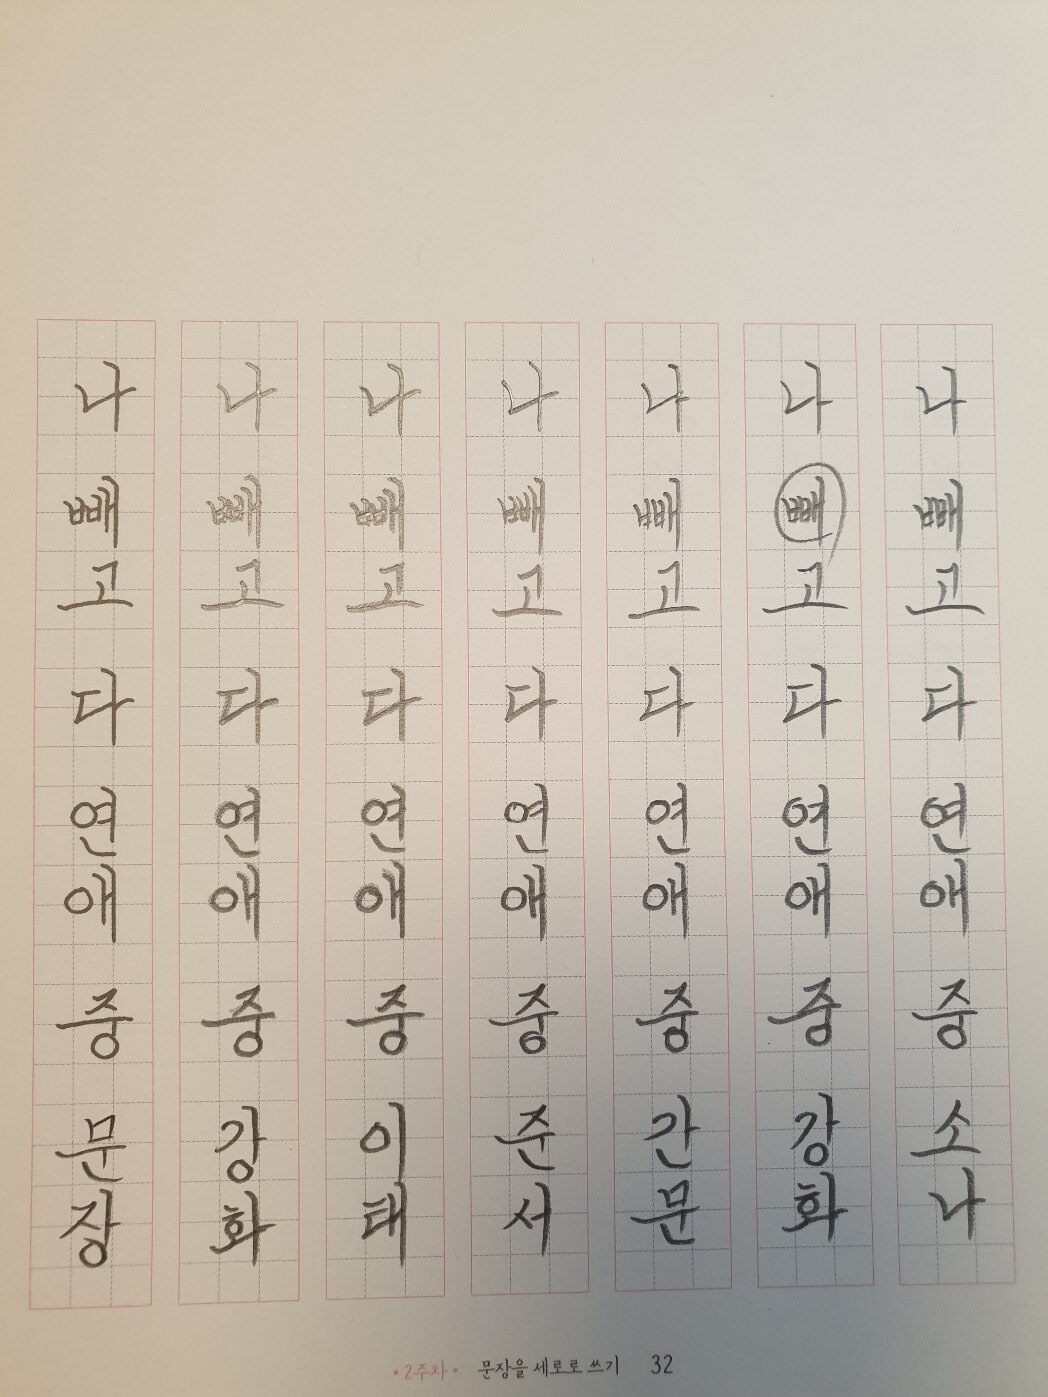 나 빼고 다 연애 중 문장
나 빼고 다 연애 중 강화
나 빼고 다 연애 중 이태
나 빼고 다 연애 중 준서
나 빼고 다 연애 중 간문
나 빼고 다 연애 중 강화
나 빼고 다 연애 중 소나
• 2주차 • 문장을 세로로 쓰기 32